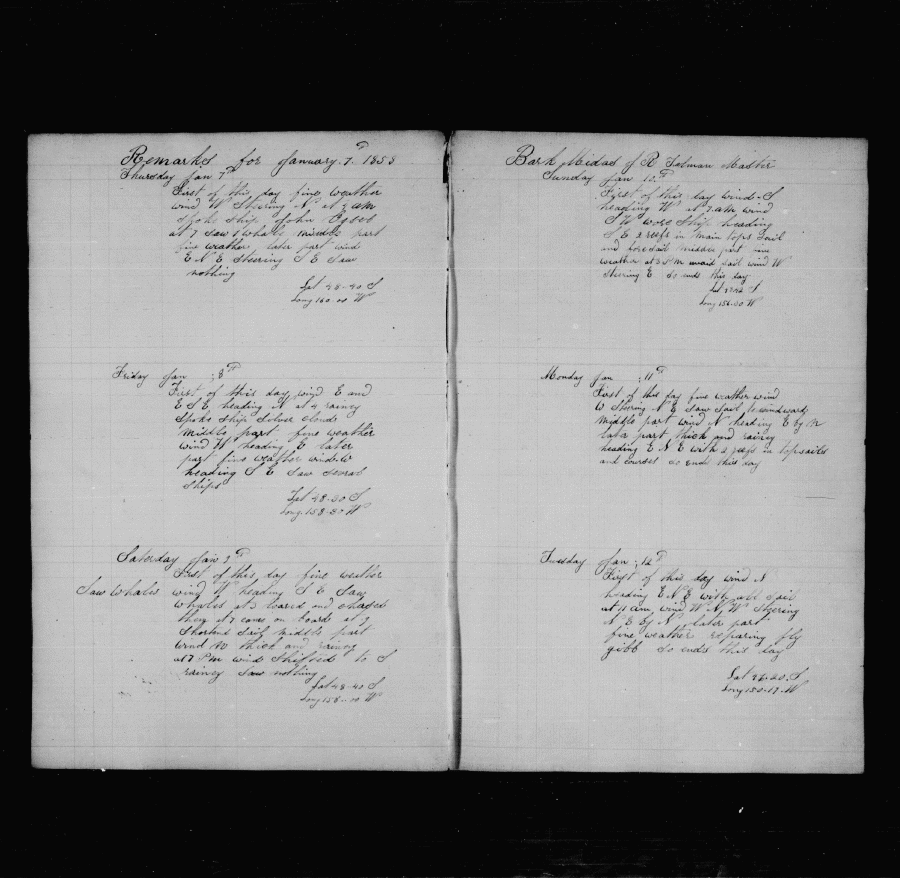 Remarks for January. 7th 1858
Thursday Jan 7th
First of this day fine weather
wind W Steering N at 3 am
Spoke Ship John
at 7 saw 1 whale middle part
fine weather, later part wind
E N E Steering S E Saw
nothing
Lat 48-40 S
Long 160-00 W
Friday Jan : 8th
First of this day wind E and
E S E, heading N at 4 rainey
Spoke Ship Silver cloud
middle part fine weather
wind W heading E later
part fine weather wind W
heading S E Saw Seoral
Ships
Lat 48-30 S
Long. 158-30 W
Saterday Jan 9th
First of this day fine weather
Saw Whales wind W heading S E Saw
Whales at 3 loard and chased
them at 7 cames on board at 9
Shortend Sail middle part
wind thick and rainey
at 7 Pm wind Shifted to S
rainey Saw nothing
Lat 48-40 S
Long 158-00 W
Bark Midas of R Tilman Master
Sunday Jan 10th
First of this day wind S
heading W at 7 am wind
S W wore Ship heading
S E 2 reefs in main tops Sail
and foresail middle part fine
weather at 3 Pm maid sail wind W
Steering E So ends this day
Lat S
Long 156-30 W
Monday Jan : 11th
First of this day fine weather wind
W Steering N E Saw Sail to windward
middle part wind N heading E by N
later part thick and rainey
heading E N E with 2 reefs in topsailes
and courses So Ends this day
Tuesday Jan : 12th
First of this day wind N
heading E N E with all Sail
at 11 am, wind W N W Steering
N E by N later part
fine weather reparing fly
gibb So ends this day
Lat 46-20 S
Long 150-17 W